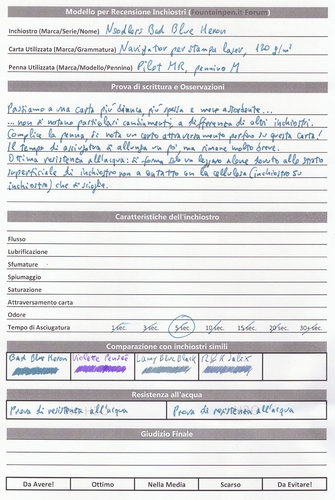 Modello per Recensione Inchiostri (Fountainpen.it Forum)
Inchiostro (Marca/Serie/Nome) Noodlers Bad Blue Heron
Carta Utilizzata (Marca/Grammatura) Navigator per stampa laser, 120 g/m²
Penna Utilizzata (Marca/Modello/Pennino) Pilot MR, pennino M
Prova di scrittura e Osservazioni
Passiamo a una carta più densa più spessa e meno assorbente...
... non si notano particolari cambiamenti, a differenza di altri inchiostri.
Complice la penna, si nota un certo attraversamento perfino su questa carta!
Il tempo di asciugatura si allunga un po' ma rimane molto breve.
Ottima resistenza all'acqua: si forma solo un leggero alone dovuto allo strato
superficiale di inchiostro non a contatto con la cellulosa (inchiostro su
inchiostro) che si scioglie.
Caratteristiche dell'inchiostro
Flusso
Lubrificazione
Sfumature
Spiumaggio
Saturazione
Attraversamento carta
Odore
Tempo di Asciugatura 1 sec. 3 sec. 5 sec. 10 sec. 15 sec. 20 sec. 30+ sec.
Comparazione con inchiostri simili
Bad Blue Heron Violette Pensée Lamy Blue Black R&K Salix
Resistenza all'acqua
Prova di resistenza all'acqua Prova di resistenza all'acqua
Giudizio Finale
Da Avere! Ottimo Nella Media Scarso Da Evitare!